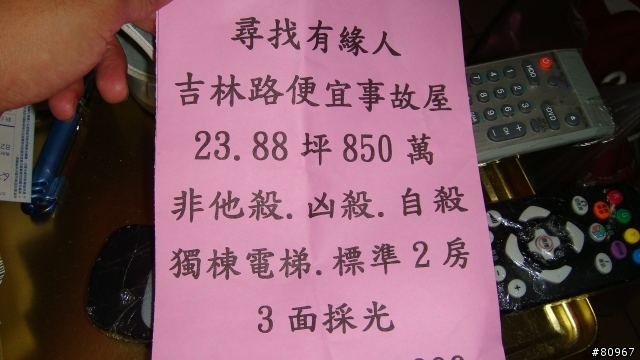 尋找有緣人
吉林路便宜事故屋
23.88坪850萬
非他殺.凶殺.自殺
獨棟電梯.標準2房
3面採光
#80967